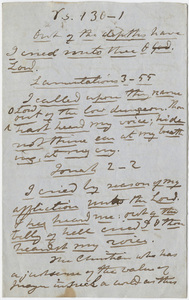 Ps. 130-1
Out of the depths have
I cried unto thee O God.
Lord.
Lamentations 3-55
I called upon the name
O Lord out of the low dungeon. Thou
hast heard my voice; hide
not thine ear at my breath
ing, at my cry.
Jonah 2-2
I cried by reason of my
affliction unto the Lord.
& he heard me: out of the
belly of hell cried I & thou
heardest my voice.
The Christian who has
a just sense of the value of
prayer in such a world as this